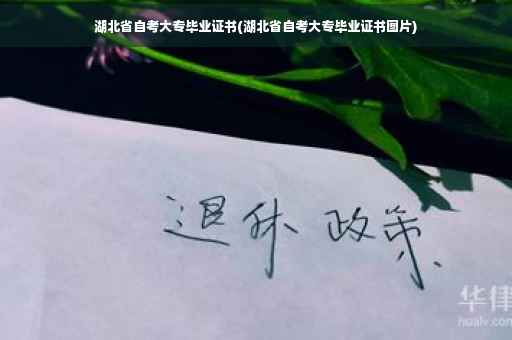 湖北省自考大专毕业证书(湖北省自考大专毕业证书图片)
退休 政策
华律
hualv.com